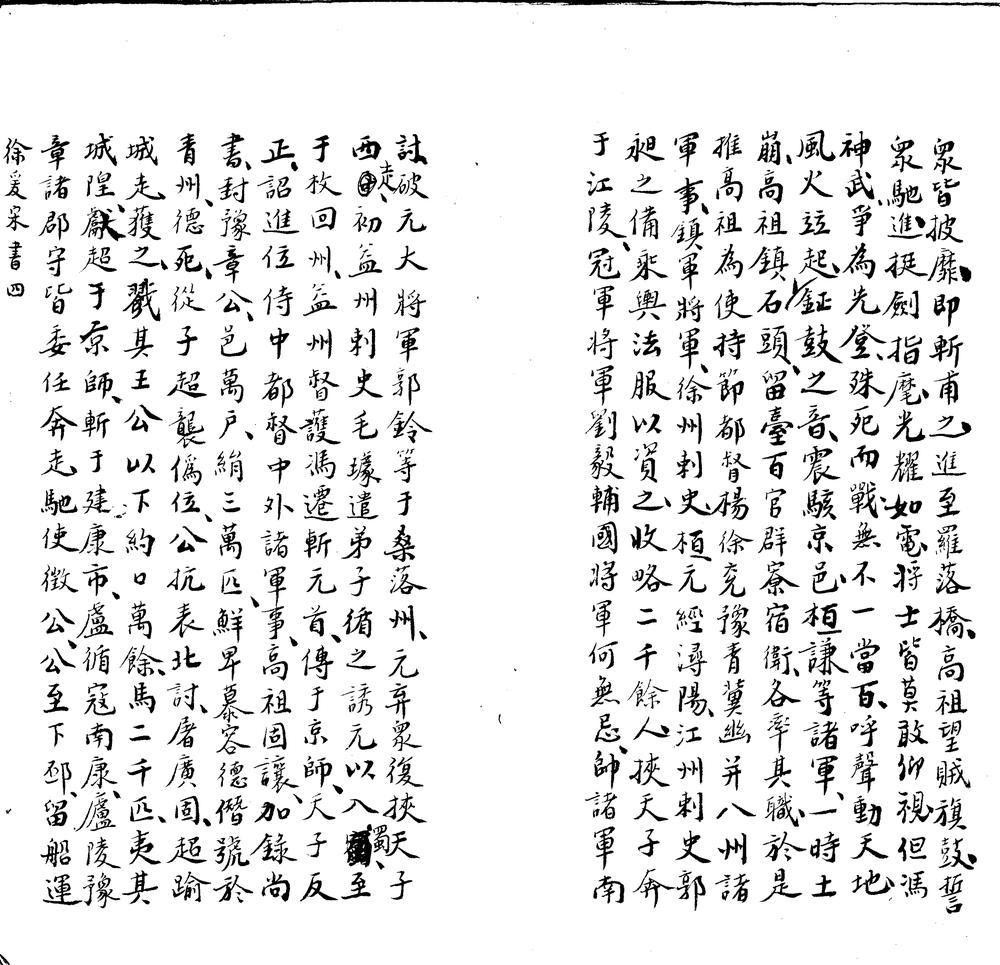 眾皆披靡即斬甫之進至羅落橋高祖望賊旗鼓誓
眾馳進挺劍指麾光耀如電將士皆莫敢仰視但馮
神武爭為先登殊死而戰無不一當百呼聲動天地
風火竝起鉦鼓之音震駭京邑桓謙等諸軍一時土
崩高祖鎮石頭留臺百官群寮宿衛各率其職於是
推高祖為使持節都督楊徐兖豫青冀幽并八州諸
軍事鎮軍將軍徐州刺史桓元經潯陽江州刺史郭
昶之備乘輿法服以資之收略二千餘人挾天子奔
于江陵冠軍將軍劉毅輔國將軍何無忌帥諸軍南
討破元大將軍郭鈴等于桑落州元弃眾復挾天子
西走初益州刺史毛璩遣弟子循之誘元以入蜀至
于枚回州益州督護馮遷斬元首傳于京師天子反
正詔進位侍中都督中外諸軍事高祖固讓加錄尚
書封豫章公邑萬戶絹三萬匹鮮卑慕容德僭號於
青州德死從子超襲偽位公抗表北討屠廣固超踰
城走獲之戮其王公以下約口萬餘馬二千匹夷其
城隍獻超于京師斬于建康市盧循寇南康廬陵豫
章諸郡守皆委任奔走馳使徵公公至下邳留船運
徐爰宋書四